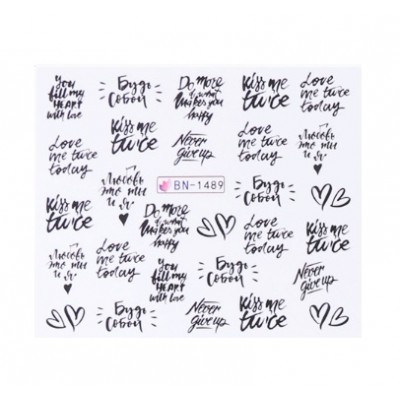 you
fill my
HEART
with love
Будь
Собой
Do more
of what
makes you
happy
Kiss me
twice
Love
me twice
today
Love
me twice
today
Kiss me
twice
Never
give up
Kiss me
twice
Love
me twice
today
Любовь
это ты
и я
BN-1489
Будь
Собой
Kiss me
twice
Do More
of what
makes you
happy
Never
give up
Любовь
это ты
и я
Love
me twice
today
you
fill my
HEART
with love
Будь
Собой
Never
give up
Будь
Собой
Never
give up
Kiss me
twice